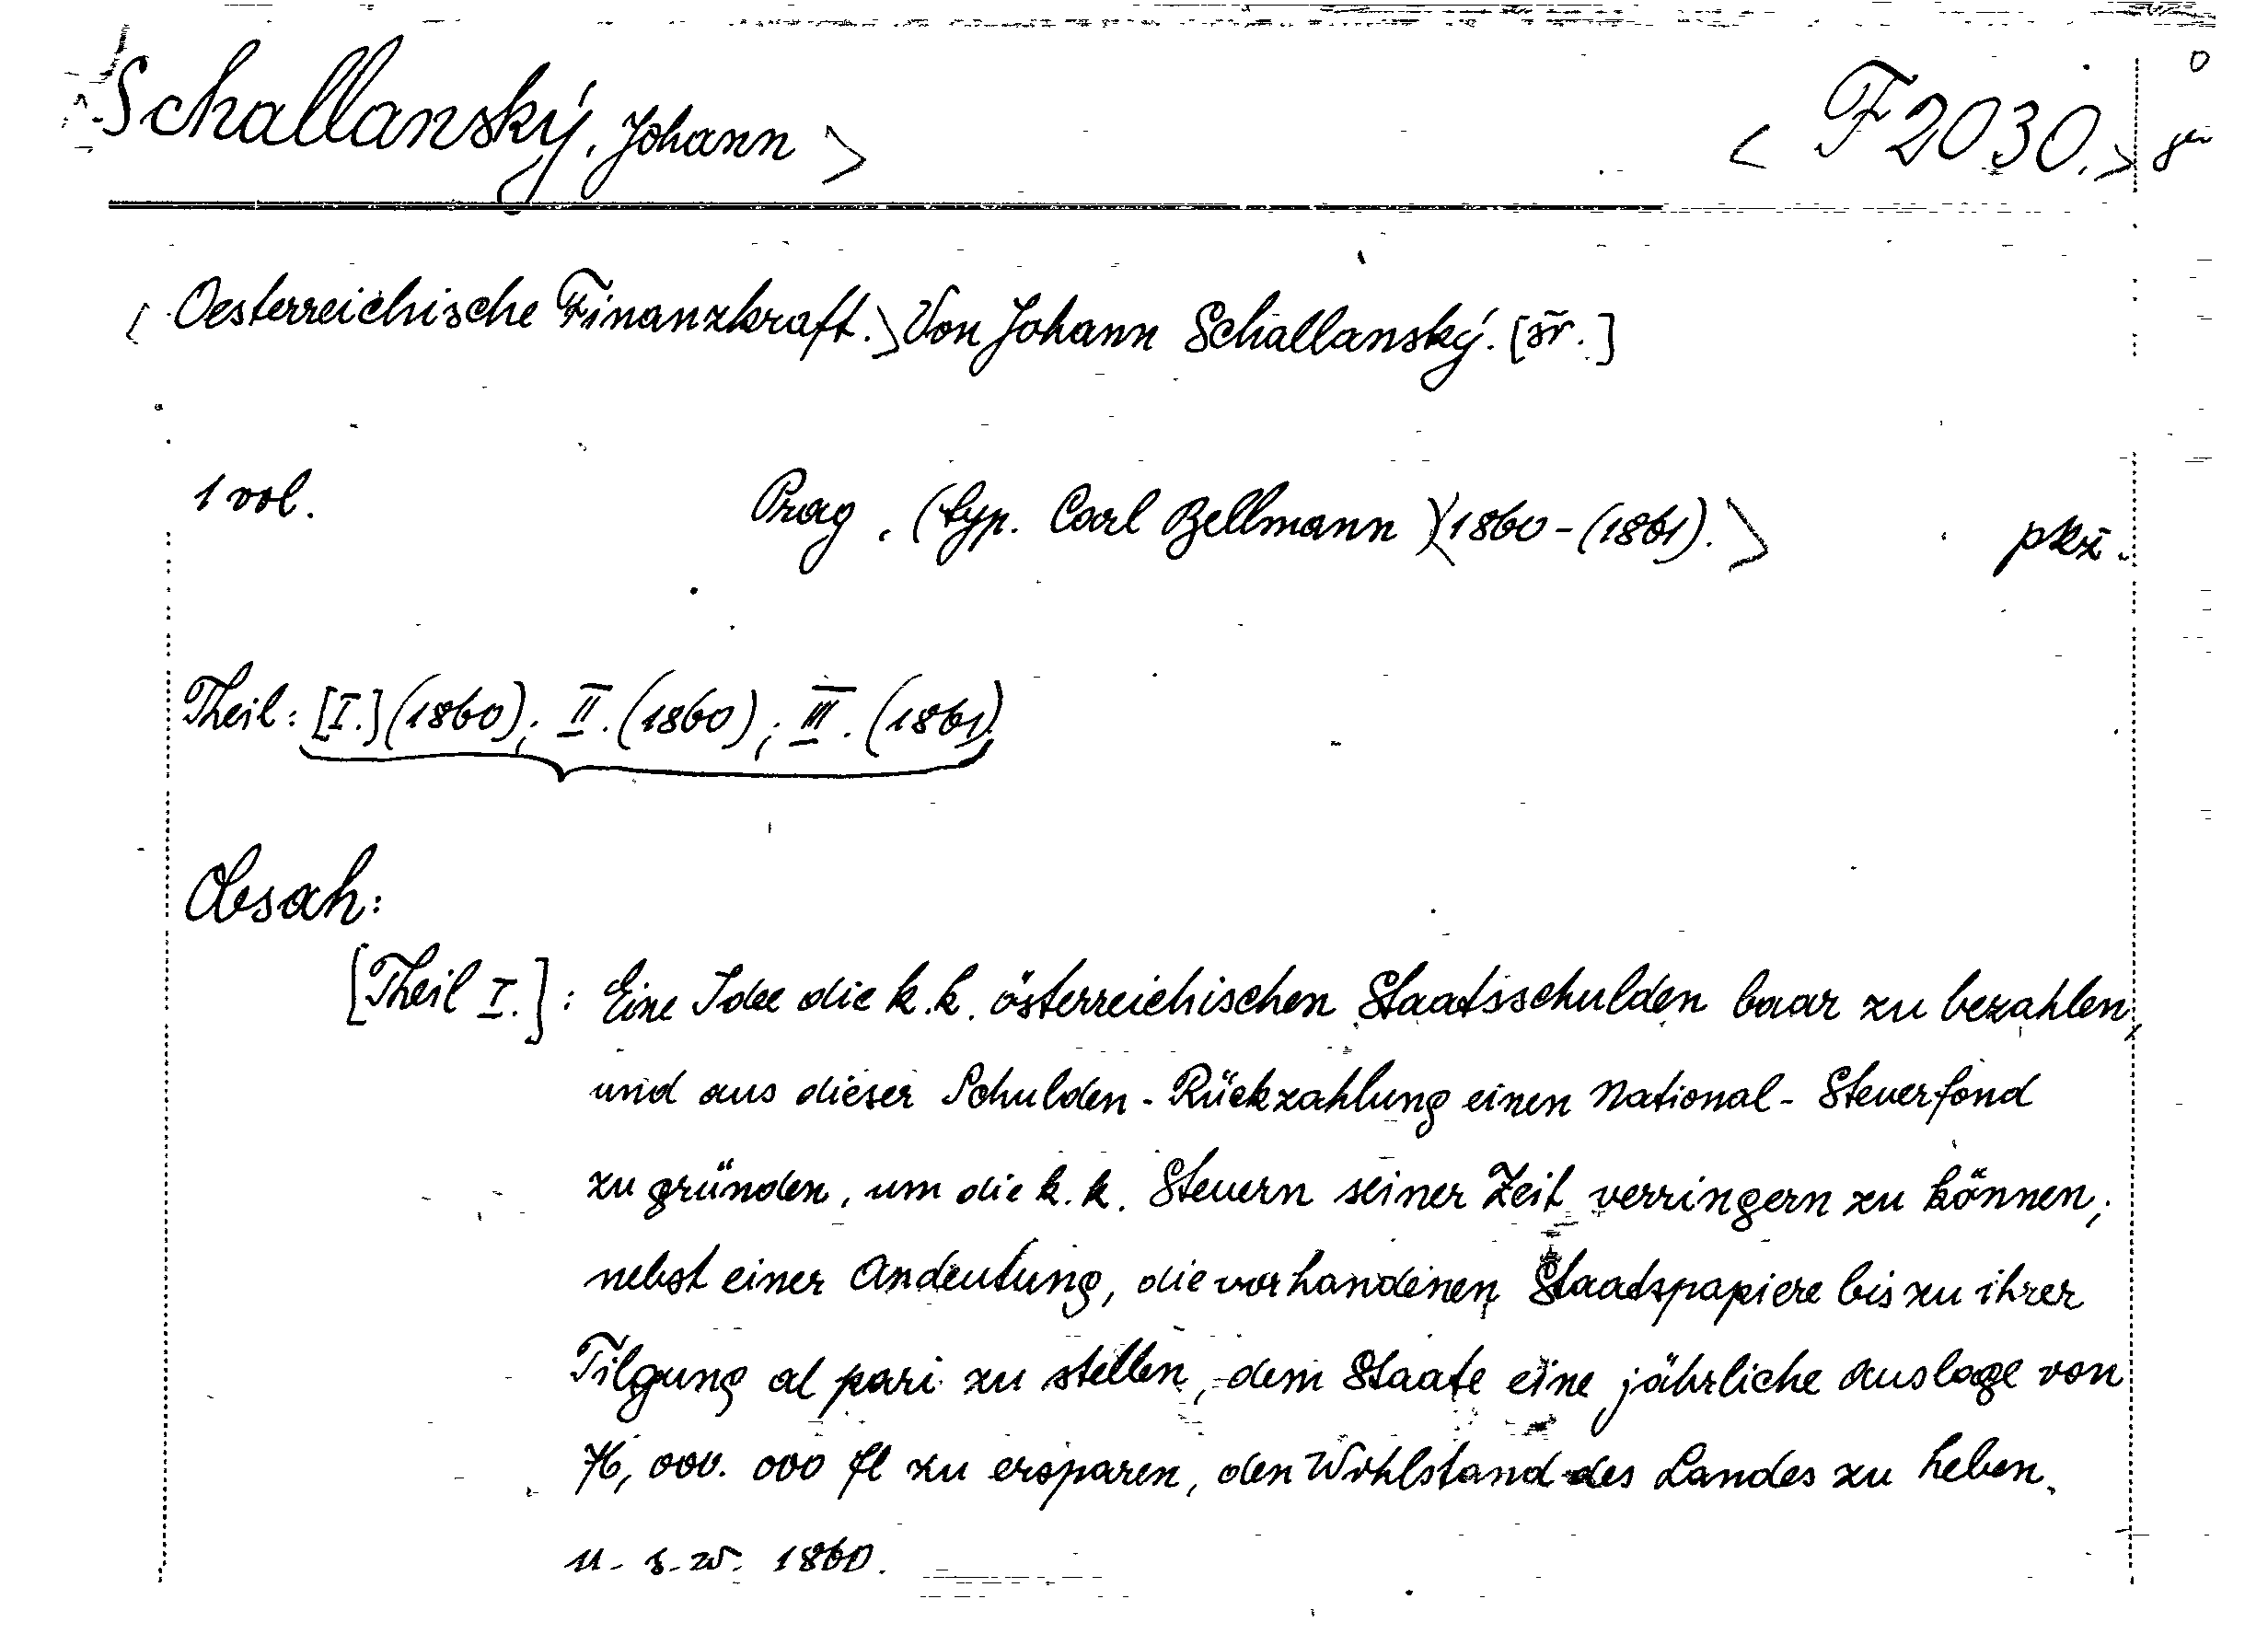 Schallanský, Johann > < F 2030. >
< Oesterreichische Finanzkraft. > Von Johann Schallanský. [šr.]
1 vol. Prag, (typ. Carl Bellmann) < 1860 - (1861). > pkž.
Theil: [I.] (1860); II. (1860); III. (1861).
Obsah:
[Theil I.]: Eine Idee die k.k. österreichischen Staatsschulden baar zu bezahlen,
und aus dieser Schulden-Rückzahlung einen National-Steuerfond
zu gründen, um die k.k. Steuern seiner Zeit verringern zu können,
nebst einer Andeutung, die vorhandenen Staatspapiere bis zu ihrer
Tilgung al pari zu stellen, dem Staate eine jährliche Auslage von
76,000.000 fl zu ersparen, den Wohlstand des Landes zu heben.
u. s. w. 1860.